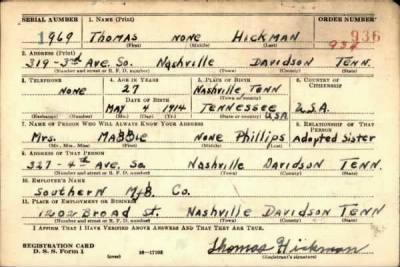 SERIAL NUMBER 1. NAME (Print) ORDER NUMBER
1969 THOMAS NONE HICKMAN 936
(First) (Middle) (Last)
2. ADDRESS (Print)
319-3rd Ave. So. Nashville Davidson Tenn.
(Number and street or R. F. D. number) (Town) (County) (State)
3. TELEPHONE 4. AGE IN YEARS 5. PLACE OF BIRTH 6. COUNTRY OF CITIZENSHIP
NONE 27 Nashville, Tenn
DATE OF BIRTH (Town or county)
MAY 4 1914 TENNESSEE U.S.A.
USA
(Mo.) (Day) (Yr.) (State or country)
7. NAME OF PERSON WHO WILL ALWAYS KNOW YOUR ADDRESS 8. RELATIONSHIP OF THAT PERSON
Mrs. MABBIE NONE Phillips Adopted Sister
(Mr., Mrs., Miss) (First) (Middle) (Last)
9. ADDRESS OF THAT PERSON
327-4th Ave. So. Nashville Davidson TENN.
(Number and street or R. F. D. number) (Town) (County) (State)
10. EMPLOYER'S NAME
Southern Mfg. Co.
11. PLACE OF EMPLOYMENT OR BUSINESS
1202 Broad St. Nashville Davidson TENN
(Number and street or R. F. D. number) (Town) (County) (State)
I AFFIRM THAT I HAVE VERIFIED ABOVE ANSWERS AND THAT THEY ARE TRUE.
REGISTRATION CARD
D. S. S. Form 1 (over) Thomas Hickman
(Registrant's signature)